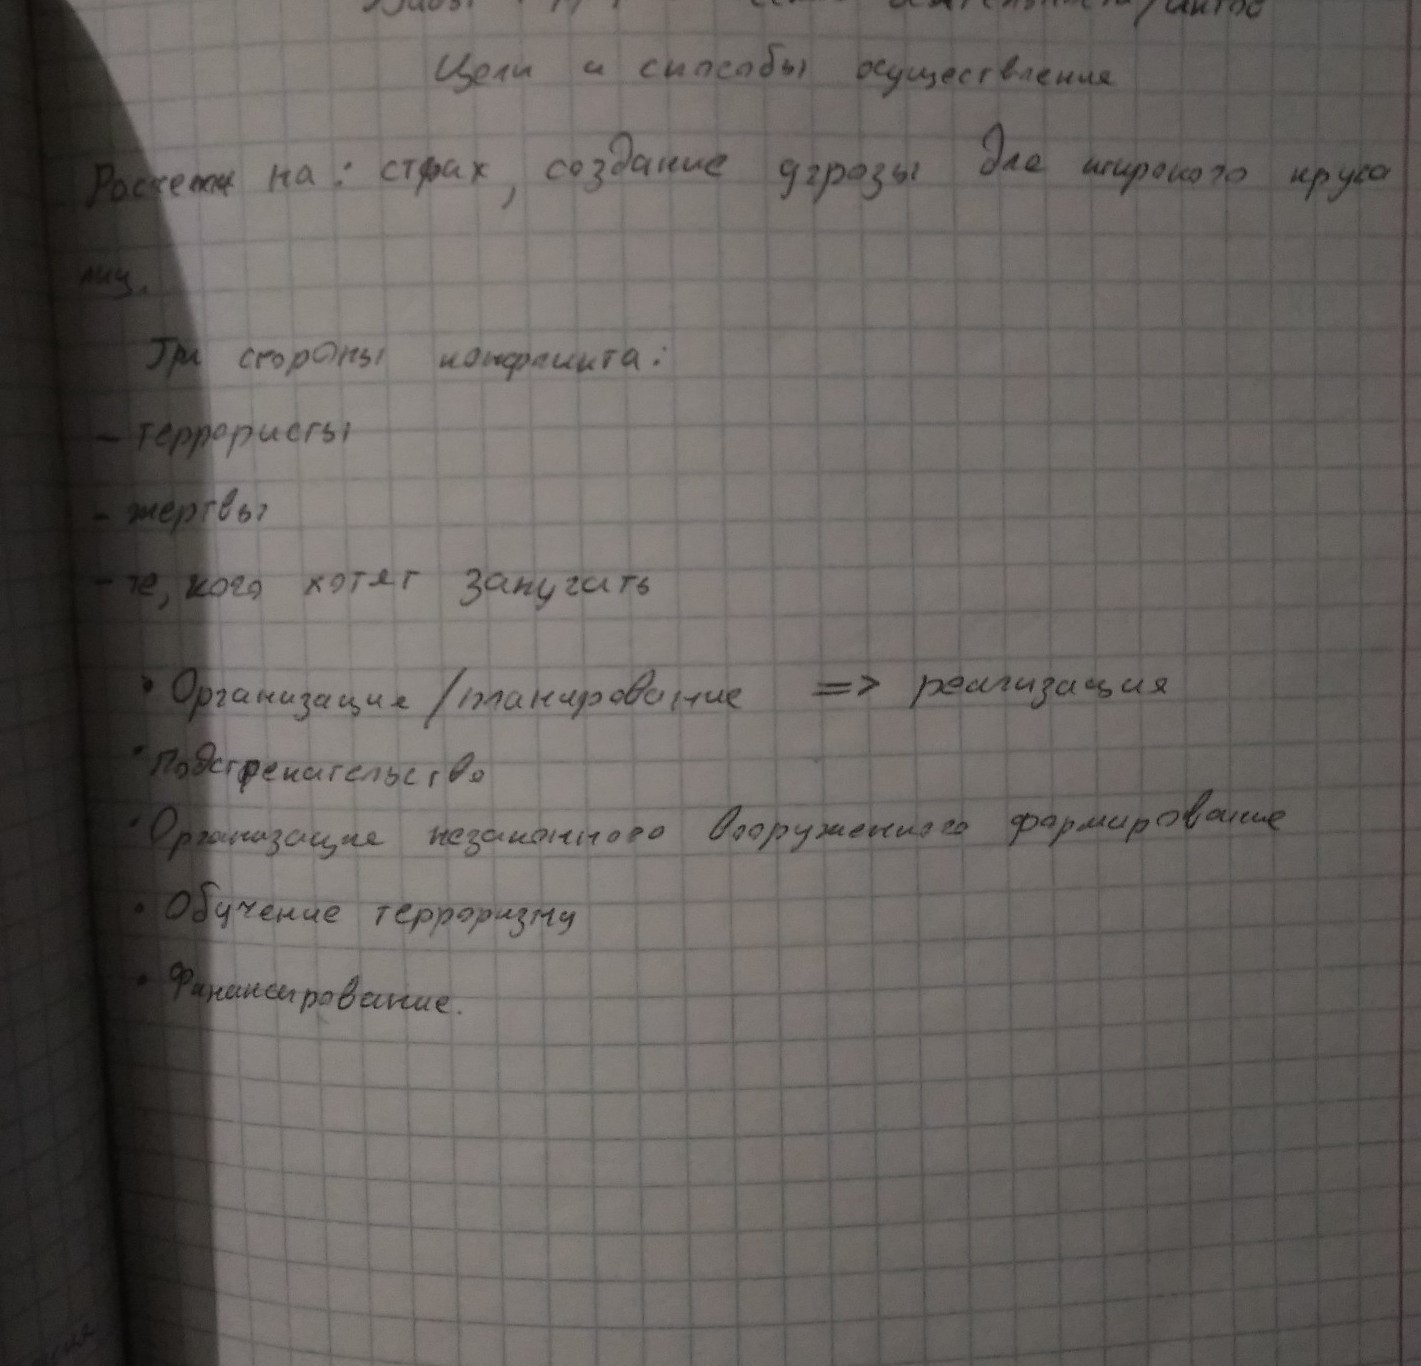 Виды
Цели и способы осуществления
на: страх, создание угрозы для широкого круга
лиц.
Три стороны конфликта:
- террористы
- жертвы
- те, кого хотят запугать
• Организация / планирование => реализация
• Подстрекательство
• Организация незаконного вооруженного формирование
• Обучение терроризму
• Финансирование.